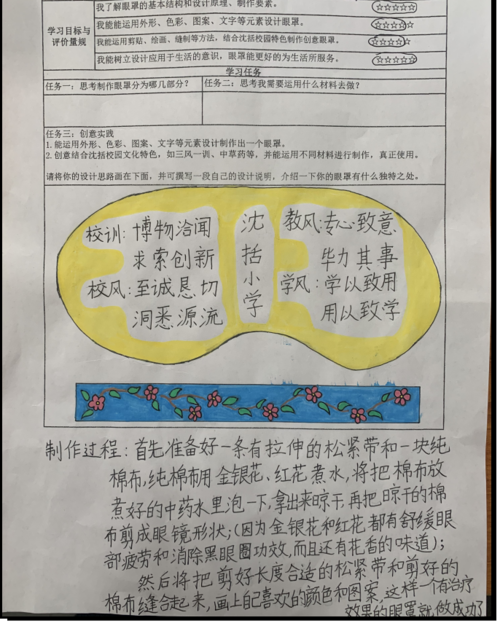 我了解眼罩的基本结构和设计原理、制作要素。
☆☆☆☆☆
学习目标与
评价量规
我能能运用外形、色彩、图案、文字等元素设计眼罩。
☆☆☆☆☆
我能运用剪贴、绘画、缝制等方法，结合沈括校园特色制作创意眼罩。
☆☆☆☆☆
我能树立设计应用于生活的意识，眼罩能更好的为生活所服务。
☆☆☆☆☆
学习任务
任务一：思考制作眼罩分为哪几部分？
任务二：思考我需要运用什么材料去做？
任务三：创意实践
1.能运用外形、色彩、图案、文字等元素设计制作出一个眼罩。
2.创意结合沈括校园文化特色，如三风一训、中草药等，并能运用不同材料进行制作，真正使用。
请将你的设计思路画在下面，并可撰写一段自己的设计说明，介绍一下你的眼罩有什么独特之处。
校训：博物洽闻
求索创新
校风：至诚恳切
洞悉源流
沈括小学
教风：专心致意
毕力其事
学风：学以致用
用以致学
制作过程：首先准备好一条有拉伸的松紧带和一块纯
棉布，纯棉布用金银花、红花煮水，将把棉布放
煮好的中药水里泡一下，拿出来晾干，再把晾干的棉
布剪成眼镜形状；（因为金银花和红花都有舒缓眼
部疲劳和消除黑眼圈功效，而且还有花香的味道）；
然后将把剪好长度合适的松紧带和剪好的
棉布缝合起来，画上自己喜欢的颜色和图案，这样一个有治疗
效果的眼罩就做成功了